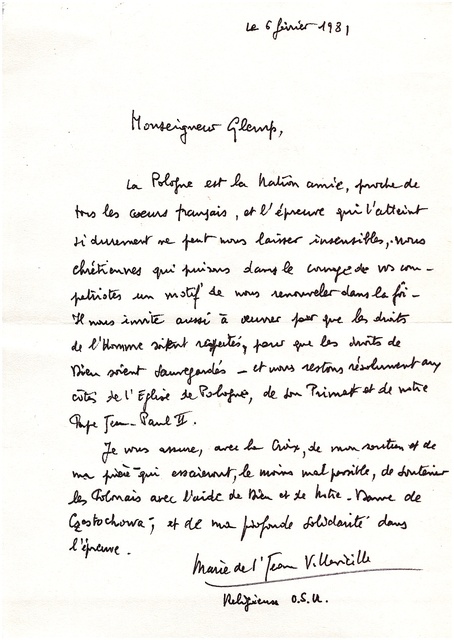 Le 6 février 1981
Monseigneur Glemp,
La Pologne est la Nation amie, proche de
tous les coeurs français, et l'épreuve qui l'atteint
si durement ne peut nous laisser insensibles, nous
chrétiennes qui puisons dans le courage de vos com-
patriotes un motif de nous renouveler dans la foi -
Il nous invite aussi à oeuvrer pour que les droits
de l'Homme soient respectés, pour que les droits de
Dieu soient sauvegardés - et nous restons résolument aux
côtés de l'Eglise de Pologne, de son Primat et de notre
Pape Jean-Paul II.
Je vous assure, avec la Croix, de mon soutien et de
ma prière qui essaieront, le moins mal possible, de soutenir
les Polonais avec l'aide de Dieu et de Notre-Dame de
Częstochowa, et de ma profonde solidarité dans
l'épreuve.
Marie de l'
Religieuse O.S.U.